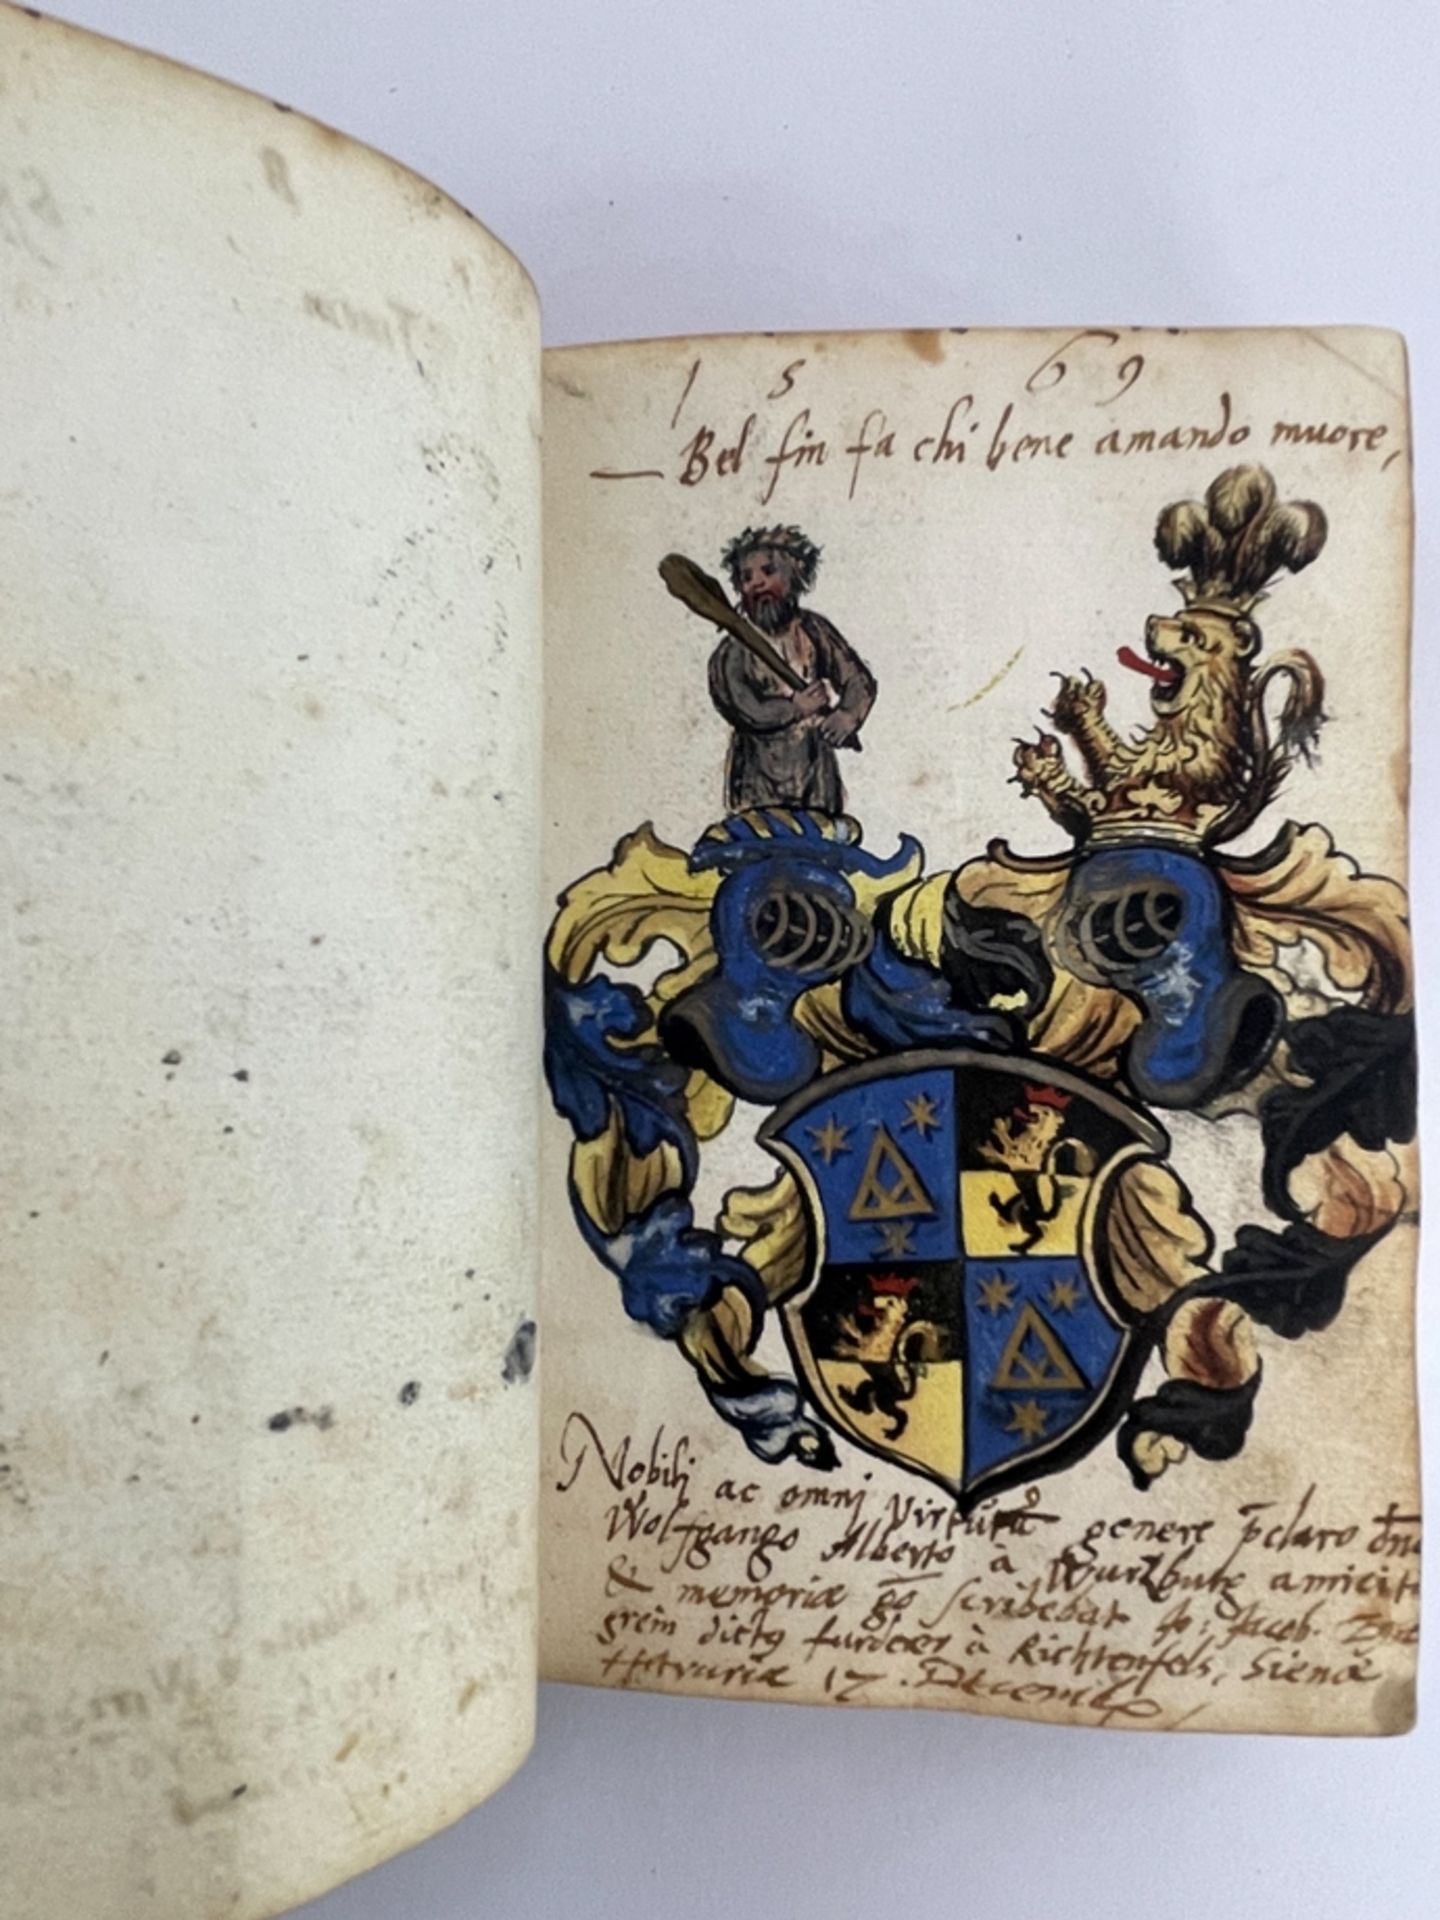 1 5 6 9
Bel fin fa chi bene amando muore,
Nobilj ac omnj virtutū genere p̄claro dn̄o
Wolfgango Alberto à Wurzburg amicit
& memoriæ g̅o scribebat Jo: Jacob.
grein dictꝰ furderer à Richtenfels, Sienæ
Hetruriæ 17. Decemb